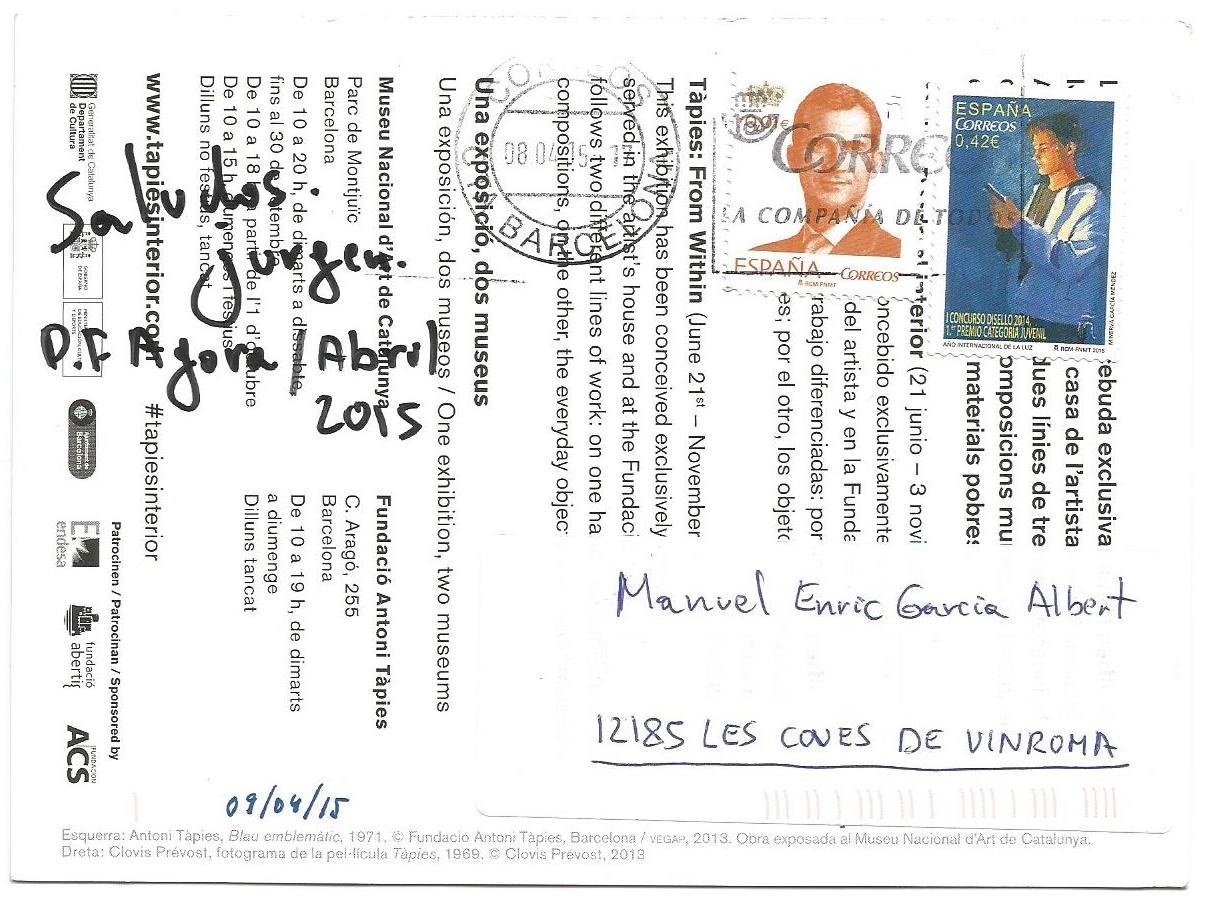 Saludos.
jurgen.
P.F. Agora / Abril
2015
Manuel Enric Garcia Albert
12185 LES COVES DE VINROMA
09/04/15
CORREOS
08 04 15
BARCELONA
CORREOS
LA COMPAÑÍA DE TODOS
0,01€
ESPAÑA CORREOS
RCM-FNMT
ESPAÑA
CORREOS
0,42€
I CONCURSO DISELLO 2014
1.er PREMIO CATEGORÍA JUVENIL
AÑO INTERNACIONAL DE LA LUZ RCM-FNMT 2015
ebuda exclusiva
casa de l'artista
dues línies de tre
omposicions mu
materials pobres
nterior (21 junio – 3 novi
oncebido exclusivamente
del artista y en la Funda
rabajo diferenciadas: por
es; por el otro, los objeto
Tàpies: From Within (June 21st – November
This exhibition has been conceived exclusively
served in the artist's house and at the Fundaci
follows two different lines of work: on one ha
compositions, on the other, the everyday objec
Una exposició, dos museus
Una exposición, dos museos / One exhibition, two museums
Museu Nacional d'Art de Catalunya
Parc de Montjuïc
Barcelona
De 10 a 20 h, de dimarts a dissabte,
fins al 30 de setembre
De 10 a 18 h a partir de l'1 d'octubre
De 10 a 15 h diumenges i festius
Dilluns no festius, tancat
Fundació Antoni Tàpies
C. Aragó, 255
Barcelona
De 10 a 19 h, de dimarts
a diumenge
Dilluns tancat
www.tapiesinterior.com #tapiesinterior
Patrocinen / Patrocinan / Sponsored by
Generalitat de Catalunya
Departament
de Cultura
GOBIERNO
DE ESPAÑA
Ajuntament de
Barcelona
endesa
fundació
abertis
FUNDACIÓN
ACS
Esquerra: Antoni Tàpies, Blau emblemàtic, 1971. © Fundació Antoni Tàpies, Barcelona / VEGAP, 2013. Obra exposada al Museu Nacional d'Art de Catalunya.
Dreta: Clovis Prévost, fotograma de la pel·lícula Tàpies, 1969. © Clovis Prévost, 2013